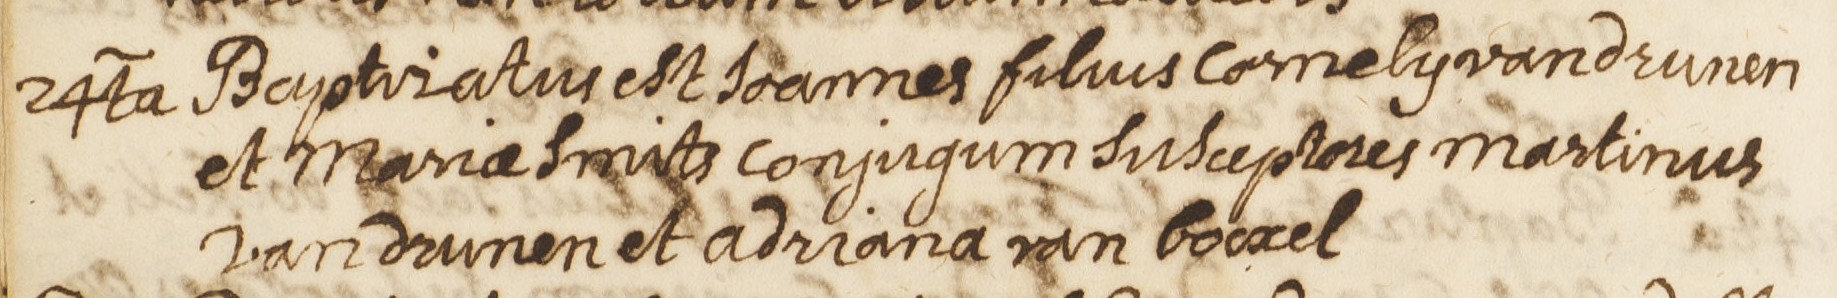 24ta Baptizatus est Joannes filius Cornely van drunen
et Mariæ Smits conjugum Susceptores Martinus
van drunen et adriana van boxel